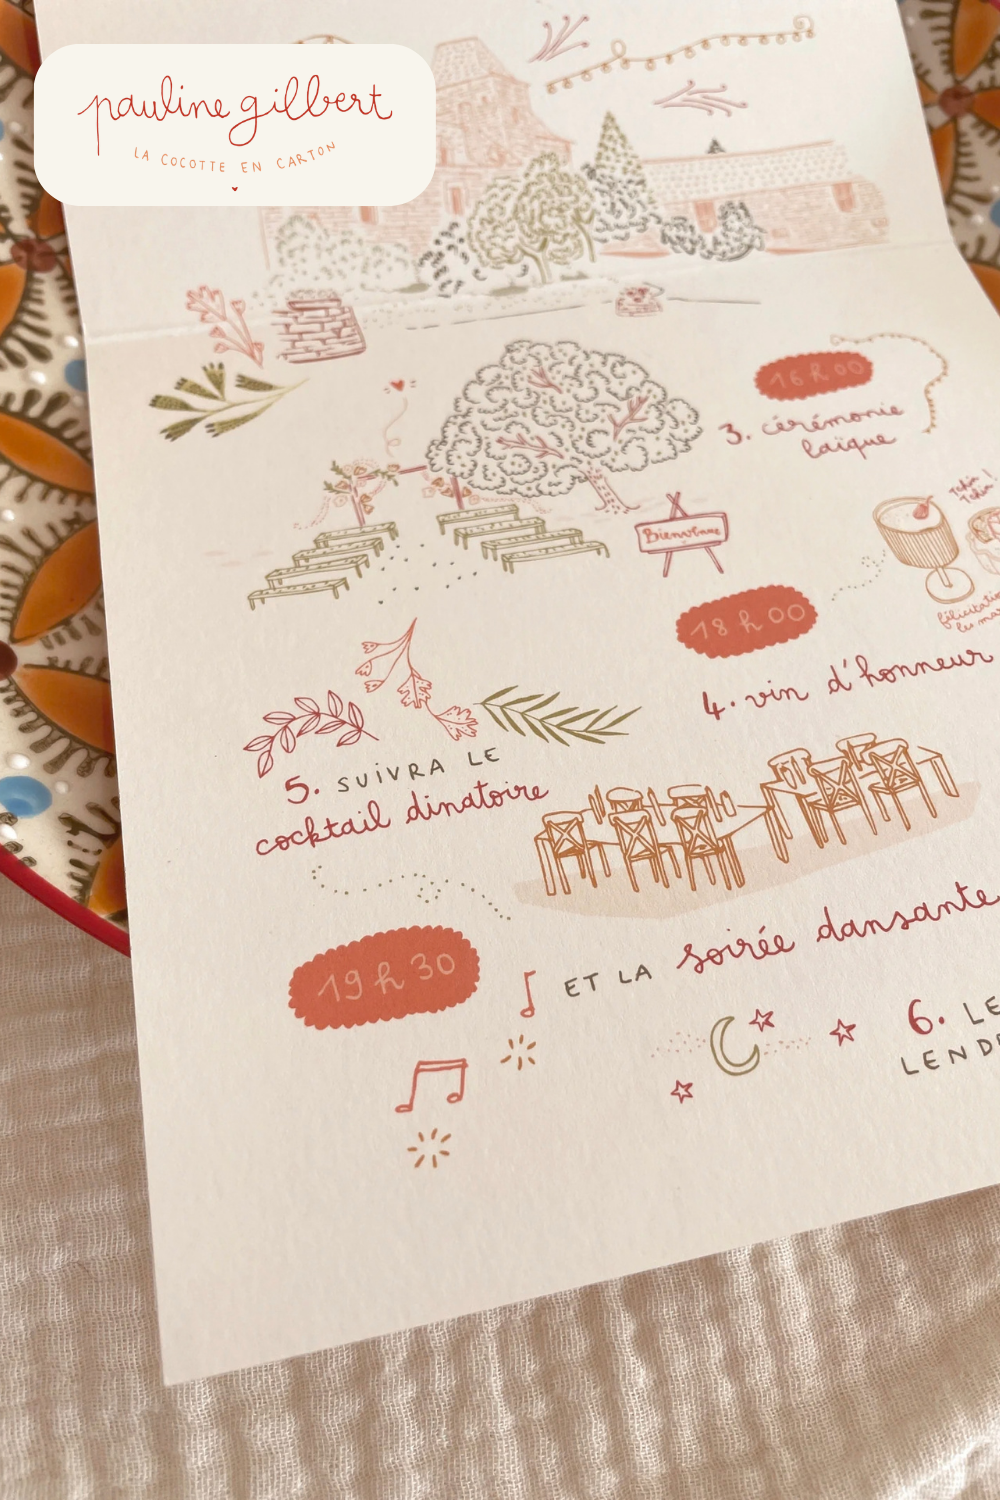 pauline gilbert
LA COCOTTE EN CARTON
16h00
3. cérémonie
laïque
Bienvenue
Tchin !
Tchin !
18h00
4. vin d'honneur
5. SUIVRA LE
cocktail dinatoire
19h30
ET LA soirée dansante
6. LE
LENDE